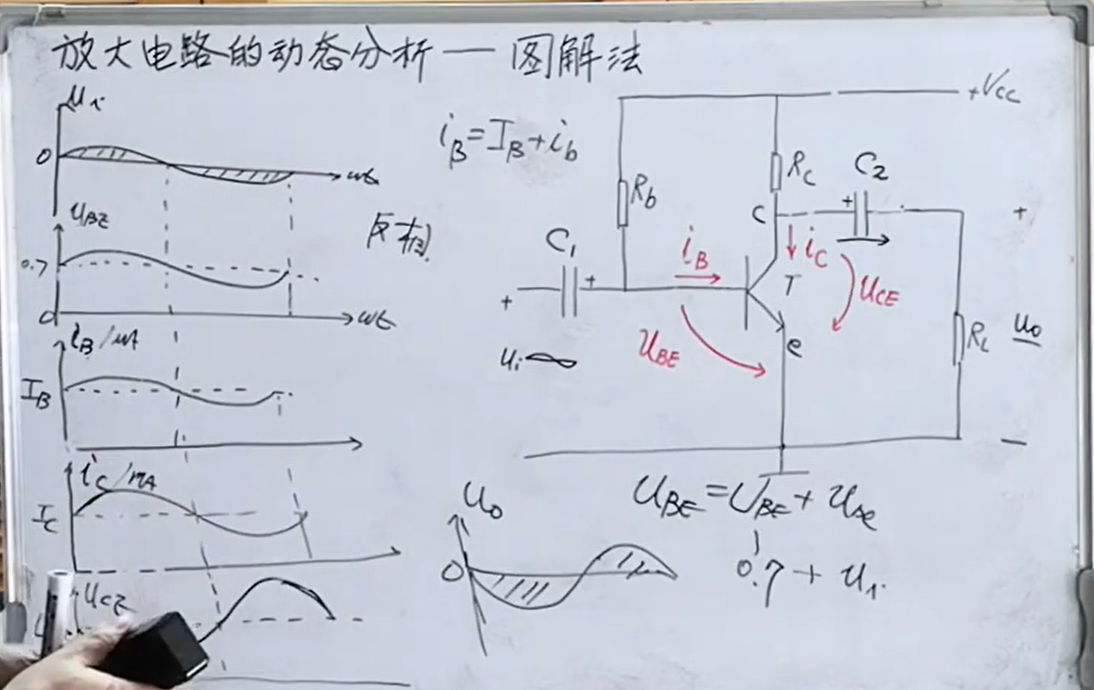 放大电路的动态分析 — 图解法
uᵢ
0
ωt
u_BE
0.7
0
ωt
i_B/μA
I_B
i_C/mA
I_C
u_CE
i_B=I_B+i_b
反相
+V_CC
R_b
R_c
C₂
+
c
C₁
+
+
i_B
i_C
T
u_CE
u_BE
e
uᵢ
R_L
+
u₀
—
u_BE=U_BE+u_be
0.7+uᵢ
u₀
0